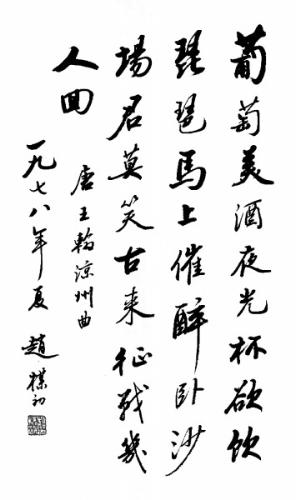 葡萄美酒夜光杯欲飲
琵琶馬上催醉卧沙
場君莫笑古来征戰幾
人回
唐王翰涼州曲
一九七八年夏 趙樸初